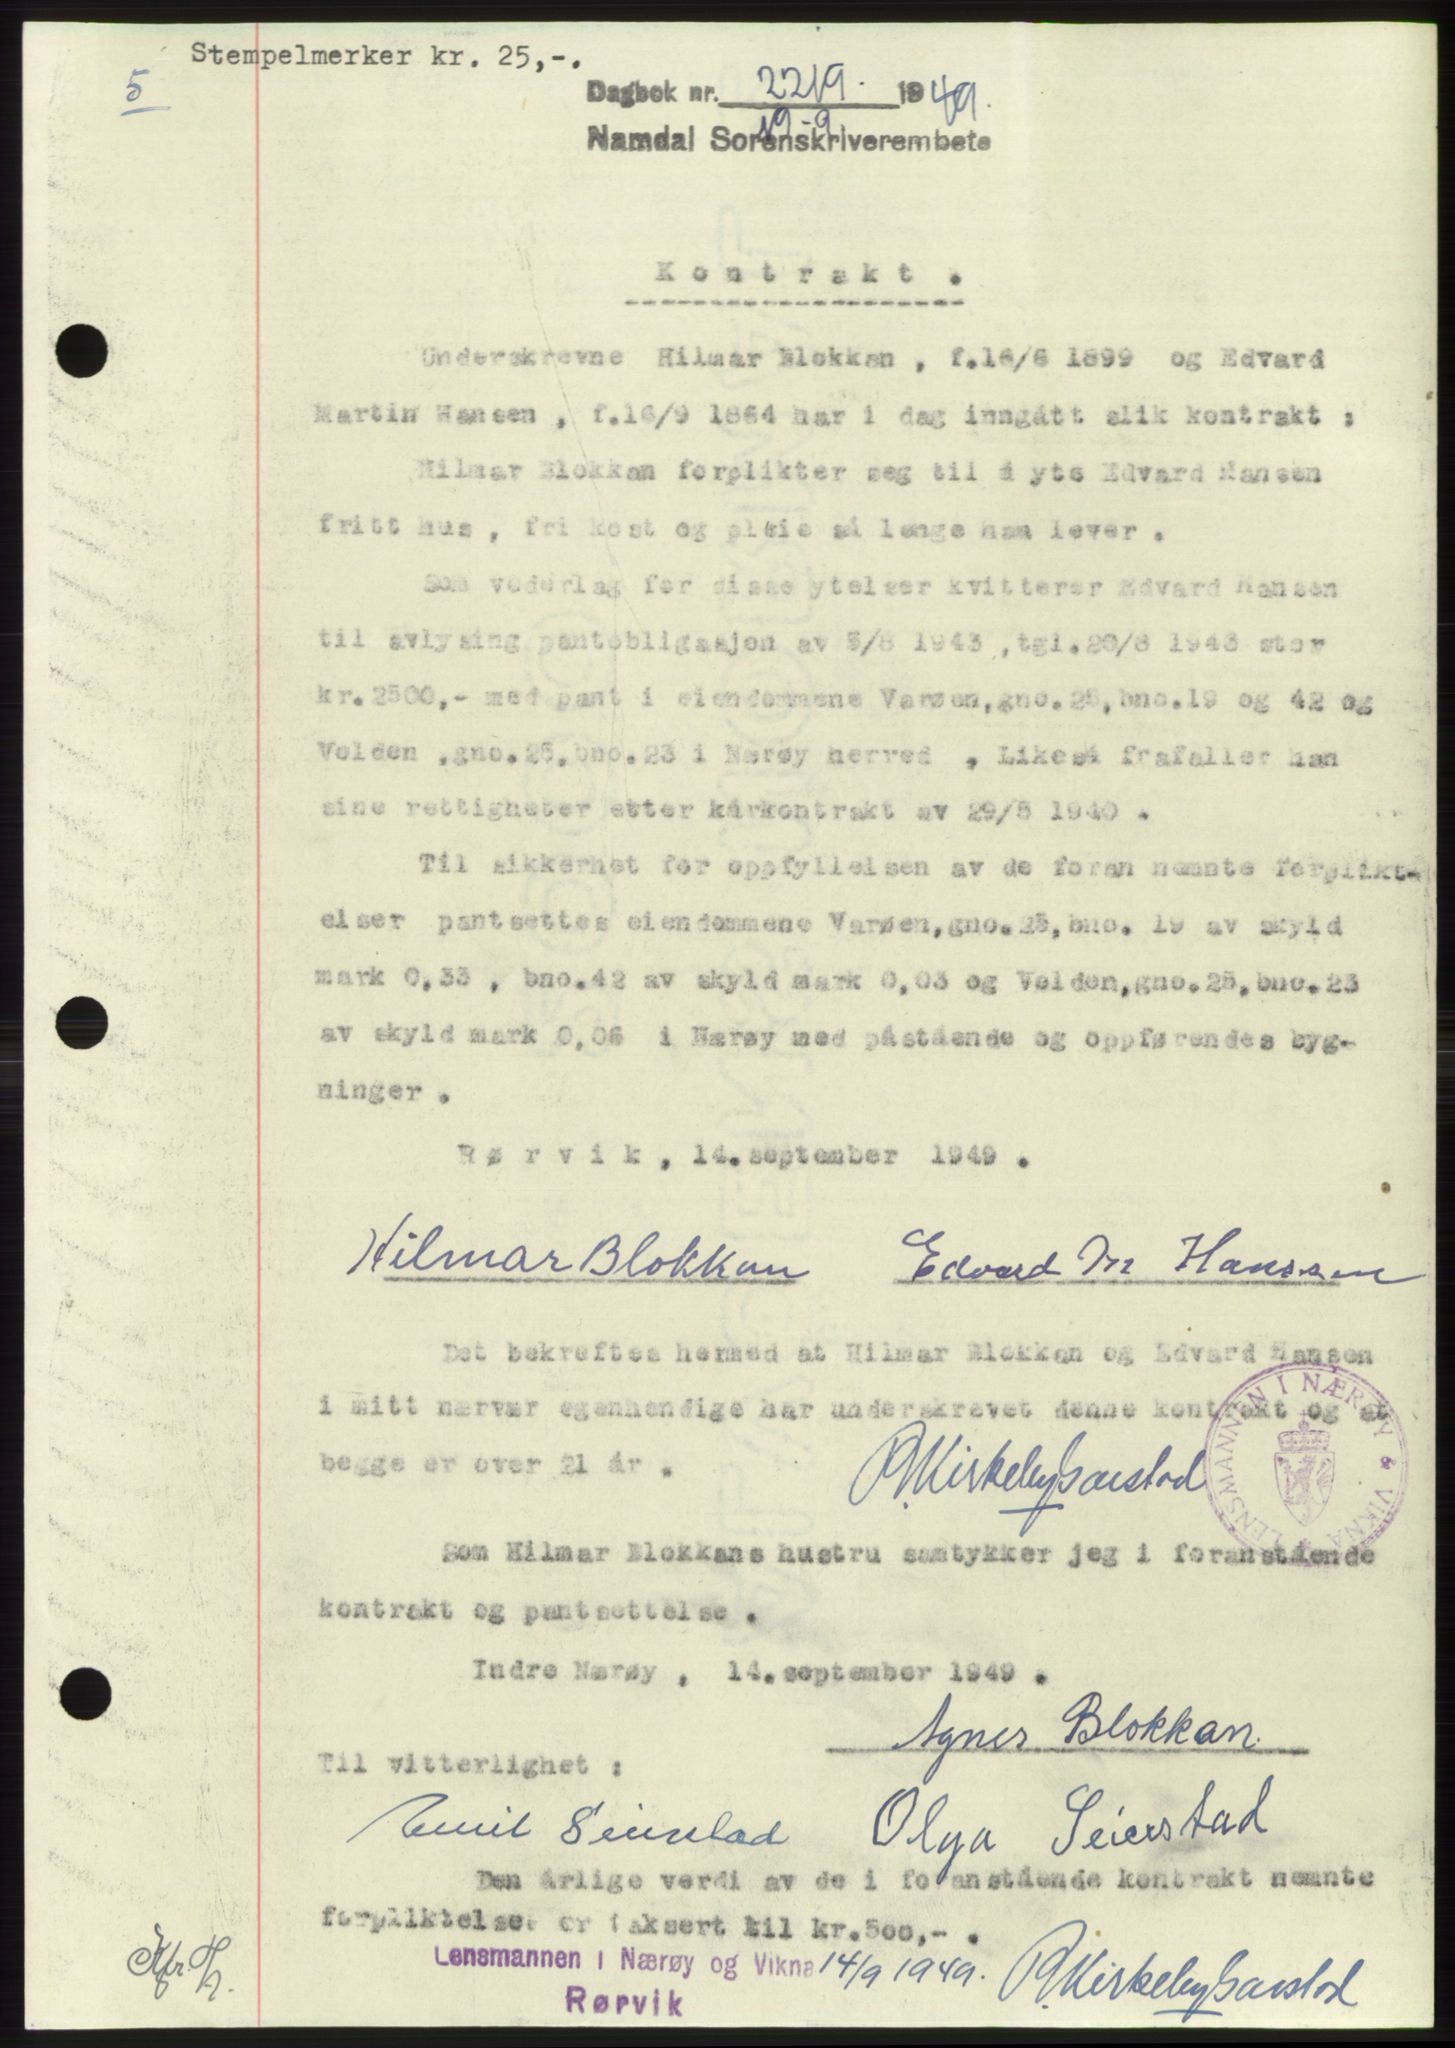 Stempelmerker kr. 25,-.
5
Dagbok nr. 2219. 1949.
19-9
Namdal Sorenskriverembete
Kontrakt.
Underskrevne Hilmar Blokkan, f.16/6 1899 og Edvard
Martin Hansen, f.16/9 1864 har i dag inngått slik kontrakt :
Hilmar Blokkan forplikter seg til å yte Edvard Hansen
fritt hus, fri kost og pleie så lenge han lever.
Som vederlag for disse ytelser kvitterer Edvard Hansen
til avlysing pantobligasjon av 5/8 1943, tgl.20/8 1943 stor
kr.2500,- med pant i eiendommene Varøen, gno.25, bno.19 og 42 og
Volden, gno.25, bno.23 i Nærøy herred. Likeså frafaller han
sine rettigheter etter kårkontrakt av 29/5 1940.
Til sikkerhet for oppfyllelsen av de foran nemnte forplikt-
elser pantsettes eiendommene Varøen, gno.25, bno. 19 av skyld
mark 0,33, bno.42 av skyld mark 0,03 og Volden, gno.25, bno.23
av skyld mark 0,06 i Nærøy med påstående og oppførendes byg-
ninger.
Rørvik, 14.september 1949.
Hilmar Blokkan Edvard M Hanssen
Det bekreftes hermed at Hilmar Blokkan og Edvard Hansen
i mitt nærvær egenhendige har underskrevet denne kontrakt og at
begge er over 21 år.
P. Kirkeby Garstad
LENSMANNEN I NÆRØY & VIKNA
Som Hilmar Blokkans hustru samtykker jeg i foranstående
kontrakt og pantsettelse.
Indre Nærøy, 14.september 1949.
Agnes Blokkan.
Til vitterlighet :
Emil Seierstad Olga Seierstad
Den årlige verdi av de i foranstående kontrakt nemnte
forpliktelser er taksert til kr.500,-.
Lensmannen i Nærøy og Vikna 14/9 1949. P. Kirkeby Garstad
Rørvik